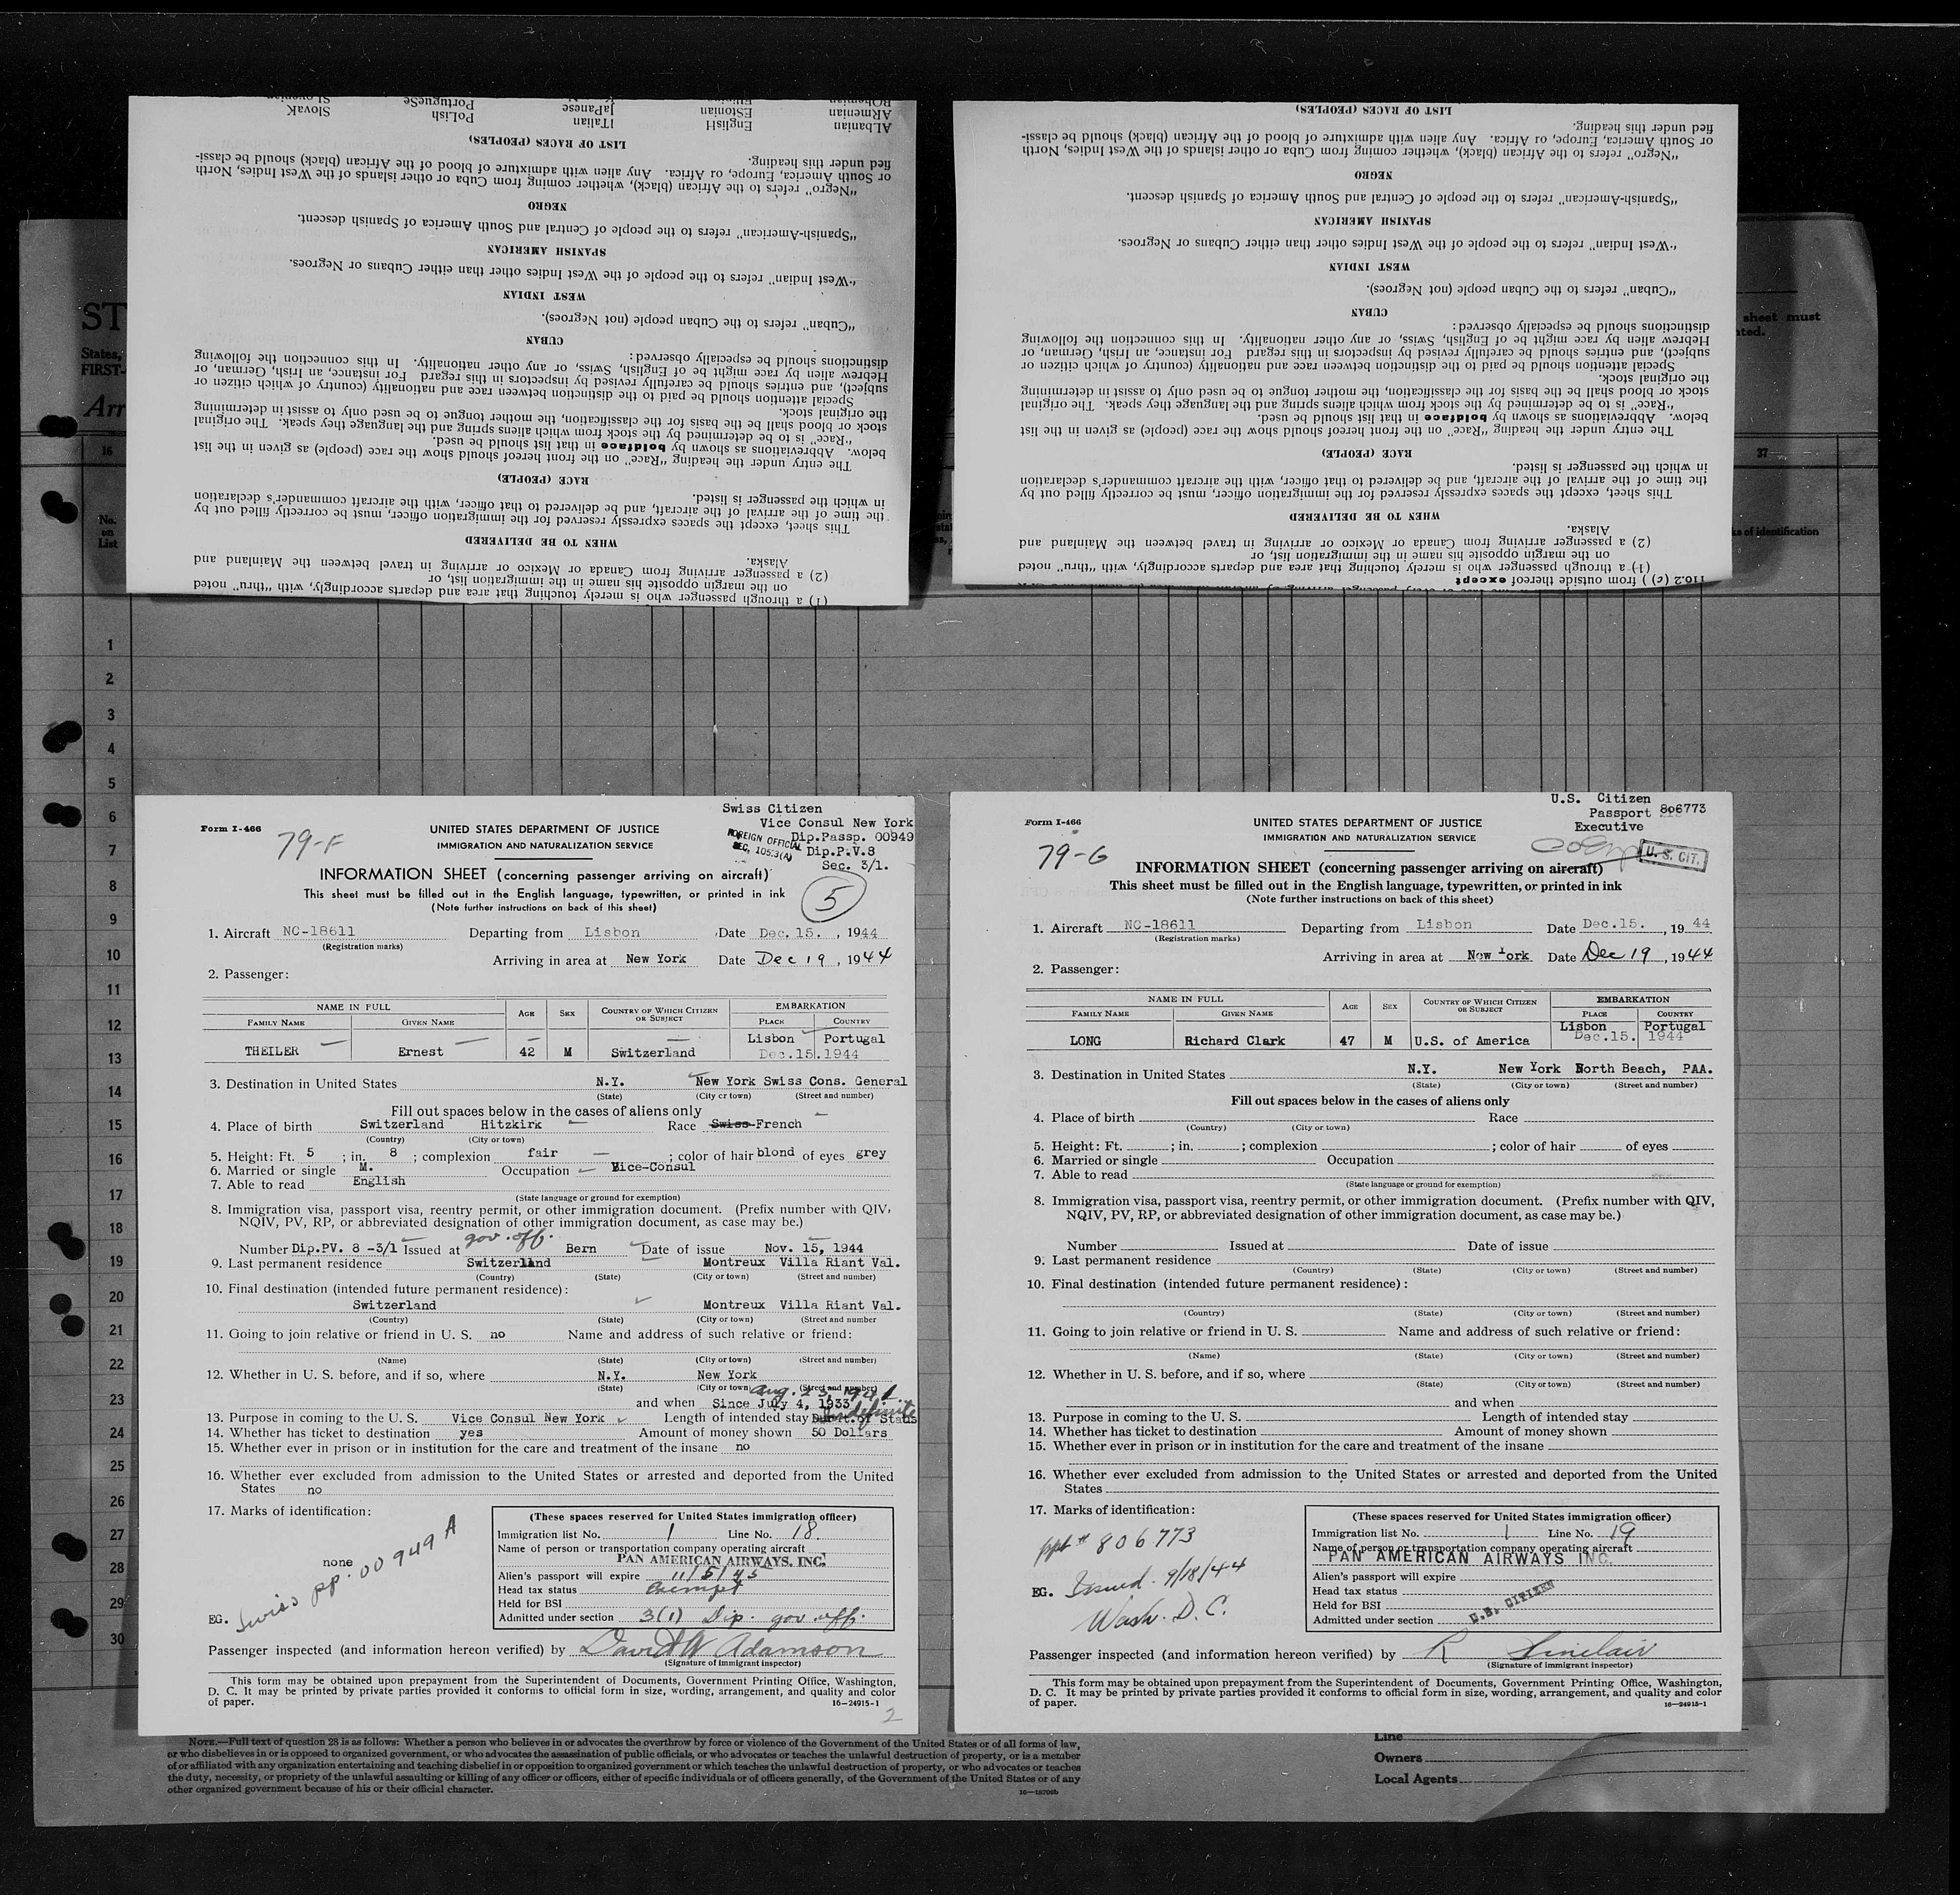 SlovaK
PoLish
PortuguеSe
ITalian
JaPanese
EngliSH
EStonian
ALbanian
ARmenian
BOhemian
LIST OF RACES (PEOPLES)
"Negro" refers to the African (black), whether coming from Cuba or other islands of the West Indies, North
or South America, Europe, or Africa. Any alien with admixture of blood of the African (black) should be classi-
fied under this heading.
NEGRO
"Spanish-American" refers to the people of Central and South America of Spanish descent.
SPANISH AMERICAN
"West Indian" refers to the people of the West Indies other than either Cubans or Negroes.
WEST INDIAN
"Cuban" refers to the Cuban people (not Negroes).
CUBAN
distinctions should be especially observed:
Hebrew alien by race might be of English, Swiss, or any other nationality. In this connection the following
subject), and entries should be carefully revised by inspectors in this regard For instance, an Irish, German, or
Special attention should be paid to the distinction between race and nationality (country of which citizen or
the original stock.
stock or blood shall be the basis for the classification, the mother tongue to be used only to assist in determining
"Race" is to be determined by the stock from which aliens spring and the language they speak. The original
below. Abbreviations as shown by boldface in that list should be used.
The entry under the heading "Race" on the front hereof should show the race (people) as given in the list
RACE (PEOPLE)
in which the passenger is listed.
the time of the arrival of the aircraft, and be delivered to that officer, with the aircraft commander's declaration
This sheet, except the spaces expressly reserved for the immigration officer, must be correctly filled out by
WHEN TO BE DELIVERED
Alaska.
(2) a passenger arriving from Canada or Mexico or arriving in travel between the Mainland and
on the margin opposite his name in the immigration list, or
(1) a through passenger who is merely touching that area and departs accordingly, with "thru" noted
LIST OF RACES (PEOPLES)
fied under this heading.
or South America, Europe, or Africa. Any alien with admixture of blood of the African (black) should be classi-
"Negro" refers to the African (black), whether coming from Cuba or other islands of the West Indies, North
NEGRO
"Spanish-American" refers to the people of Central and South America of Spanish descent.
SPANISH AMERICAN
"West Indian" refers to the people of the West Indies other than either Cubans or Negroes.
WEST INDIAN
"Cuban" refers to the Cuban people (not Negroes).
CUBAN
distinctions should be especially observed:
Hebrew alien by race might be of English, Swiss, or any other nationality. In this connection the following
subject), and entries should be carefully revised by inspectors in this regard For instance, an Irish, German, or
Special attention should be paid to the distinction between race and nationality (country of which citizen or
the original stock.
stock or blood shall be the basis for the classification, the mother tongue to be used only to assist in determining
"Race" is to be determined by the stock from which aliens spring and the language they speak. The original
below. Abbreviations as shown by boldface in that list should be used.
The entry under the heading "Race" on the front hereof should show the race (people) as given in the list
RACE (PEOPLE)
in which the passenger is listed.
the time of the arrival of the aircraft, and be delivered to that officer, with the aircraft commander's declaration
This sheet, except the spaces expressly reserved for the immigration officer, must be correctly filled out by
WHEN TO BE DELIVERED
Alaska.
(2) a passenger arriving from Canada or Mexico or arriving in travel between the Mainland and
on the margin opposite his name in the immigration list, or
(1) a through passenger who is merely touching that area and departs accordingly, with "thru" noted
110.2 (c) ) from outside thereof except
ST
States,
FIRST-
Arr
16
No.
on
List
sheet must
37
ks of identification
1
2
3
4
5
6
7
8
9
10
11
12
13
14
15
16
17
18
19
20
21
22
23
24
25
26
27
28
29
30
Swiss Citizen
Vice Consul New York
Dip.Passp. 00949
Dip.P.V.8
Sec. 3/1.
FOREIGN OFFICIAL
SEC. 105.3(A)
Form I-466
79-F
UNITED STATES DEPARTMENT OF JUSTICE
IMMIGRATION AND NATURALIZATION SERVICE
INFORMATION SHEET (concerning passenger arriving on aircraft)
This sheet must be filled out in the English language, typewritten, or printed in ink
(Note further instructions on back of this sheet)
5
1. Aircraft NC-18611 Departing from Lisbon Date Dec. 15. , 1944
(Registration marks)
Arriving in area at New York Date Dec 19 , 1944
2. Passenger:
NAME IN FULL AGE SEX COUNTRY OF WHICH CITIZEN OR SUBJECT EMBARKATION
FAMILY NAME GIVEN NAME PLACE COUNTRY
Lisbon Portugal
THEILER Ernest 42 M Switzerland Dec.15.1944
3. Destination in United States N.Y. New York Swiss Cons. General
(State) (City or town) (Street and number)
Fill out spaces below in the cases of aliens only
4. Place of birth Switzerland Hitzkirk Race Swiss French
(Country) (City or town)
5. Height: Ft. 5 ; in. 8 ; complexion fair ; color of hair blond of eyes grey
6. Married or single M. Occupation Vice-Consul
7. Able to read English
(State language or ground for exemption)
8. Immigration visa, passport visa, reentry permit, or other immigration document. (Prefix number with QIV,
NQIV, PV, RP, or abbreviated designation of other immigration document, as case may be.)
gov. off.
Number Dip.PV. 8 -3/1 Issued at Bern Date of issue Nov. 15, 1944
9. Last permanent residence Switzerland Montreux Villa Riant Val.
(Country) (State) (City or town) (Street and number)
10. Final destination (intended future permanent residence):
Switzerland Montreux Villa Riant Val.
(Country) (State) (City or town) (Street and number
11. Going to join relative or friend in U. S. no Name and address of such relative or friend:
(Name) (State) (City or town) (Street and number)
12. Whether in U. S. before, and if so, where N.Y. New York
(State) (City or town) (Street and number)
Aug. 23, 1941
and when Since July 4, 1933
13. Purpose in coming to the U. S. Vice Consul New York Length of intended stay Indefinite
14. Whether has ticket to destination yes Amount of money shown 50 Dollars
15. Whether ever in prison or in institution for the care and treatment of the insane no
16. Whether ever excluded from admission to the United States or arrested and deported from the United
States no
17. Marks of identification:
none
Swiss pp. 00949 A
EG.
(These spaces reserved for United States immigration officer)
Immigration list No. 1 Line No. 18.
Name of person or transportation company operating aircraft
PAN AMERICAN AIRWAYS, INC.
Alien's passport will expire 11/5/45
Head tax status Exempt
Held for BSI
Admitted under section 3(1) Dip. gov. off.
Passenger inspected (and information hereon verified) by David W Adamson
(Signature of immigrant inspector)
This form may be obtained upon prepayment from the Superintendent of Documents, Government Printing Office, Washington,
D. C. It may be printed by private parties provided it conforms to official form in size, wording, arrangement, and quality and color
of paper. 16-24915-1
2
U.S. Citizen
Passport 806773
Executive
U. S. CIT.
Form I-466
79-G
UNITED STATES DEPARTMENT OF JUSTICE
IMMIGRATION AND NATURALIZATION SERVICE
INFORMATION SHEET (concerning passenger arriving on aircraft)
This sheet must be filled out in the English language, typewritten, or printed in ink
(Note further instructions on back of this sheet)
1. Aircraft NC-18611 Departing from Lisbon Date Dec.15. , 19 44
(Registration marks)
Arriving in area at New York Date Dec 19 , 1944
2. Passenger:
NAME IN FULL AGE SEX COUNTRY OF WHICH CITIZEN OR SUBJECT EMBARKATION
FAMILY NAME GIVEN NAME PLACE COUNTRY
Lisbon Portugal
LONG Richard Clark 47 M U.S. of America Dec.15. 1944
3. Destination in United States N.Y. New York North Beach, PAA.
(State) (City or town) (Street and number)
Fill out spaces below in the cases of aliens only
4. Place of birth Race
(Country) (City or town)
5. Height: Ft. ; in. ; complexion ; color of hair of eyes
6. Married or single Occupation
7. Able to read
(State language or ground for exemption)
8. Immigration visa, passport visa, reentry permit, or other immigration document. (Prefix number with QIV,
NQIV, PV, RP, or abbreviated designation of other immigration document, as case may be.)
Number Issued at Date of issue
9. Last permanent residence
(Country) (State) (City or town) (Street and number)
10. Final destination (intended future permanent residence):
(Country) (State) (City or town) (Street and number)
11. Going to join relative or friend in U. S. Name and address of such relative or friend:
(Name) (State) (City or town) (Street and number)
12. Whether in U. S. before, and if so, where
(State) (City or town) (Street and number)
and when
13. Purpose in coming to the U. S. Length of intended stay
14. Whether has ticket to destination Amount of money shown
15. Whether ever in prison or in institution for the care and treatment of the insane
16. Whether ever excluded from admission to the United States or arrested and deported from the United
States
17. Marks of identification:
ppt # 806773
EG. Issued 9/18/44
Wash. D. C.
(These spaces reserved for United States immigration officer)
Immigration list No. 1 Line No. 19
Name of person or transportation company operating aircraft
PAN AMERICAN AIRWAYS INC.
Alien's passport will expire
Head tax status
Held for BSI
Admitted under section U.S. CITIZEN
Passenger inspected (and information hereon verified) by R Sinclair
(Signature of immigrant inspector)
This form may be obtained upon prepayment from the Superintendent of Documents, Government Printing Office, Washington,
D. C. It may be printed by private parties provided it conforms to official form in size, wording, arrangement, and quality and color
of paper. 16-24915-1
NOTE.—Full text of question 28 is as follows: Whether a person who believes in or advocates the overthrow by force or violence of the Government of the United States or of all forms of law,
or who disbelieves in or is opposed to organized government, or who advocates the assassination of public officials, or who advocates or teaches the unlawful destruction of property, or is a member
of or affiliated with any organization entertaining and teaching disbelief in or opposition to organized government or which teaches the unlawful destruction of property, or who advocates or teaches
the duty, necessity, or propriety of the unlawful assaulting or killing of any officer or officers, either of specific individuals or of officers generally, of the Government of the United States or of any
other organized government because of his or their official character. 16-18709b
Line
Owners
Local Agents